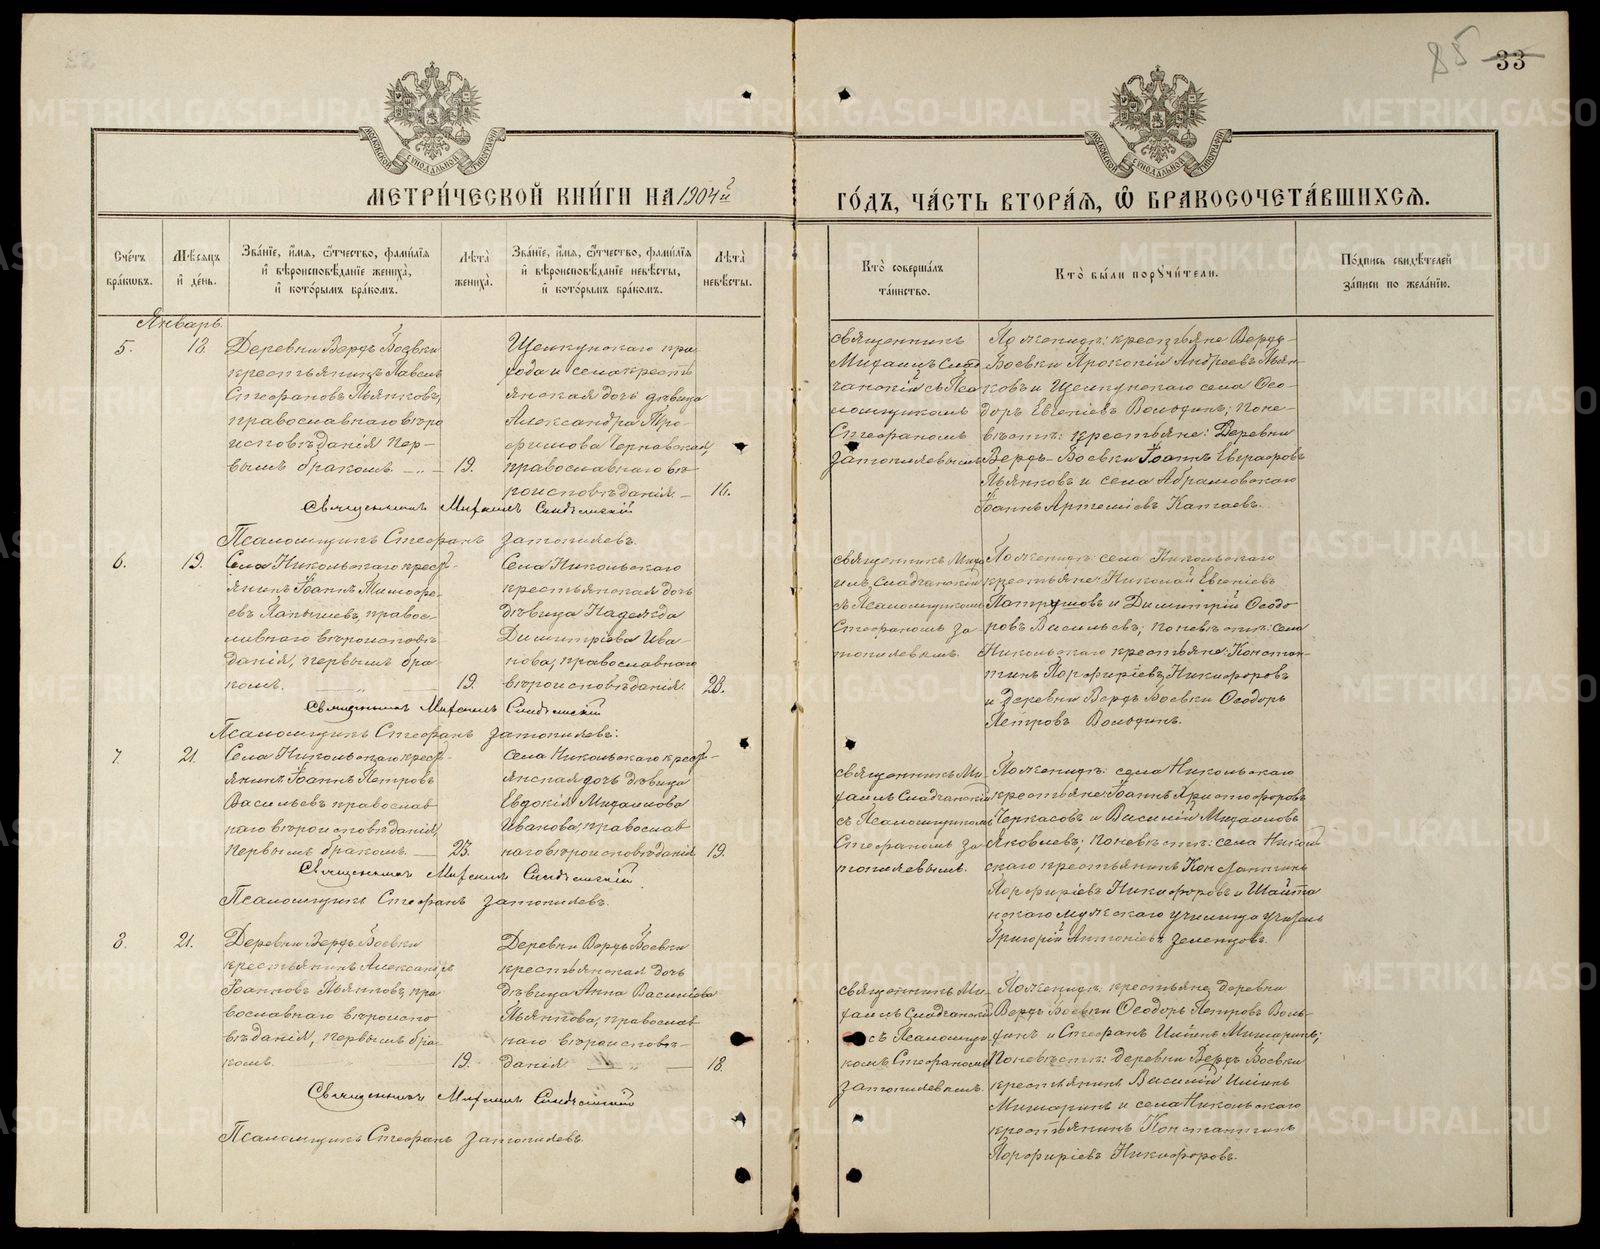 85 33
МЕТРИ́ЧЕСКОЙ КНИ́ГИ НА 1904й
ГО́ДЪ, ЧА́СТЬ ВТОРА́Я, Ѿ БРАКОСОЧЕТА́ВШИХСЯ.
Сче́тъ бра́кѡвъ.
Мѣ́сяцъ и҆ де́нь.
Зва́нїе, и҆́мя, ѻ҆́тчество, фами́лїя и҆ вѣроисповѣ́данїе жениха̀, и҆ кото́рымъ бра́комъ.
Лѣта̀ жениха̀.
Зва́нїе, и҆́мя, ѻ҆́тчество, фами́лїя и҆ вѣроисповѣ́данїе невѣ́сты, и҆ кото́рымъ бра́комъ.
Лѣта̀ невѣ́сты.
Кто̀ соверша́лъ та́инство.
Кто̀ бы́ли порꙋчи́тели.
По́дпись свидѣ́телей за́писи по жела́нїю.
Январь.
5.
18.
Деревни Верхъ-Боевки
крестьянинъ Павелъ
Стефановъ Пьянковъ,
православнаго вѣро
исповѣданія пер-
вымъ бракомъ
19.
Щелкунскаго при
хода и села крест
янская дочь дѣвица
Александра Тро-
фимова Чернавская,
православнаго вѣ
роисповѣданія
16.
священникъ
Михаилъ
съ Пса
ломщикомъ
Стефаномъ
Затопляевымъ
По женихѣ: крестьяне Верхъ-
Боевки Прокопій Андреевъ Пьян-
ковъ и Щелкунскаго села Ѳео-
доръ Евгеніевъ Володинъ; по не-
вѣстѣ: крестьяне: Деревни
Верхъ-Боевки Іоаннъ Евграфовъ
Пьянковъ и села Абрамовскаго
Іоаннъ Артеміевъ Катаевъ.
Священникъ Михаилъ
Псаломщикъ Стефанъ Затопляевъ.
6.
19.
Села Никольскаго крест-
янинъ Іоаннъ Тимофе-
евъ Папышевъ, правос-
лавнаго вѣроисповѣ-
данія, первымъ бра-
комъ.
19.
Села Никольскаго
крестьянская дочь
дѣвица Надежда
Димитріева Ива-
нова, православнаго
вѣроисповѣданія
23.
священникъ Миха
илъ
съ Псаломщикомъ
Стефаномъ За
топляевымъ.
По женихѣ: села Никольскаго
крестьяне Николай Евгеніевъ
Патрушовъ и Димитрій Ѳеодо
ровъ Васильевъ; по невѣстѣ: села
Никольскаго крестьяне: Констан-
тинъ Порфиріевъ Никифоровъ
и деревни Верхъ Боевки Ѳеодоръ
Петровъ Володинъ.
Священникъ Михаилъ
Псаломщикъ Стефанъ Затопляевъ.
7.
21.
Села Никольскаго крест-
янинъ Іоаннъ Петровъ
Васильевъ православ
наго вѣроисповѣданія,
первымъ бракомъ.
23.
Села Никольскаго крест-
янская дочь дѣвица
Евдокія Михаилова
Иванова, православ
наго вѣроисповѣданія
19.
священникъ Ми-
хаилъ
съ Псаломщикомъ
Стефаномъ За
топляевымъ.
По женихѣ: села Никольскаго
крестьяне Іоаннъ Христофоровъ
Черкасовъ и Василій Михаиловъ
Яковлевъ; по невѣстѣ: села Николь
скаго крестьянинъ Константинъ
Порфиріевъ Никифоровъ и Шайта
нскаго мужскаго училища учитель
Григорій Антоніевъ Зеленцовъ.
Священникъ Михаилъ
Псаломщикъ Стефанъ Затопляевъ.
8.
21.
Деревни Верхъ Боевки
крестьянинъ Александръ
Іоанновъ Пьянковъ, пра
вославнаго вѣроиспо
вѣданія, первымъ бра-
комъ.
19.
Деревни Верхъ Боевки
крестьянская дочь
дѣвица Анна Василіева
Пьянкова, православ
наго вѣроисповѣ-
данія
18.
священникъ Ми-
хаилъ
съ Псаломщи
комъ Стефаномъ
Затопляевымъ.
По женихѣ: крестьяне, деревни
Верхъ Боевки Ѳеодоръ Петровъ Воло-
динъ и Стефанъ Ильинъ Мишаринъ;
По невѣстѣ: деревни Верхъ Боевки
крестьянинъ Василій Ильинъ
Мишаринъ и села Никольскаго
крестьянинъ Константинъ
Порфиріевъ Никифоровъ.
Священникъ Михаилъ
Псаломщикъ Стефанъ Затопляевъ.
METRIKI.GASO-URAL.RU